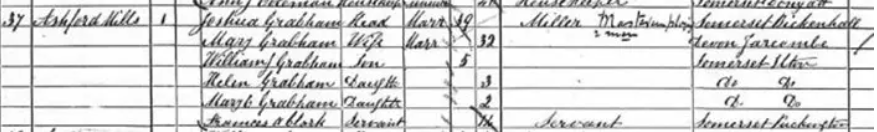 Housekeeper Somerset
37 Ashford Mills 1 Joshua Grabham Head Marr 39 Miller Master employ 2 men Somerset Bickenhall
Mary Grabham Wife Marr 32 Devon Yarcombe
William J Grabham Son 5 Somerset Ilton
Helen Grabham Daught 3 Do Do
Mary E Grabham Daught 2 Do Do
Frances A Clark Servant Servant Somerset Puckington